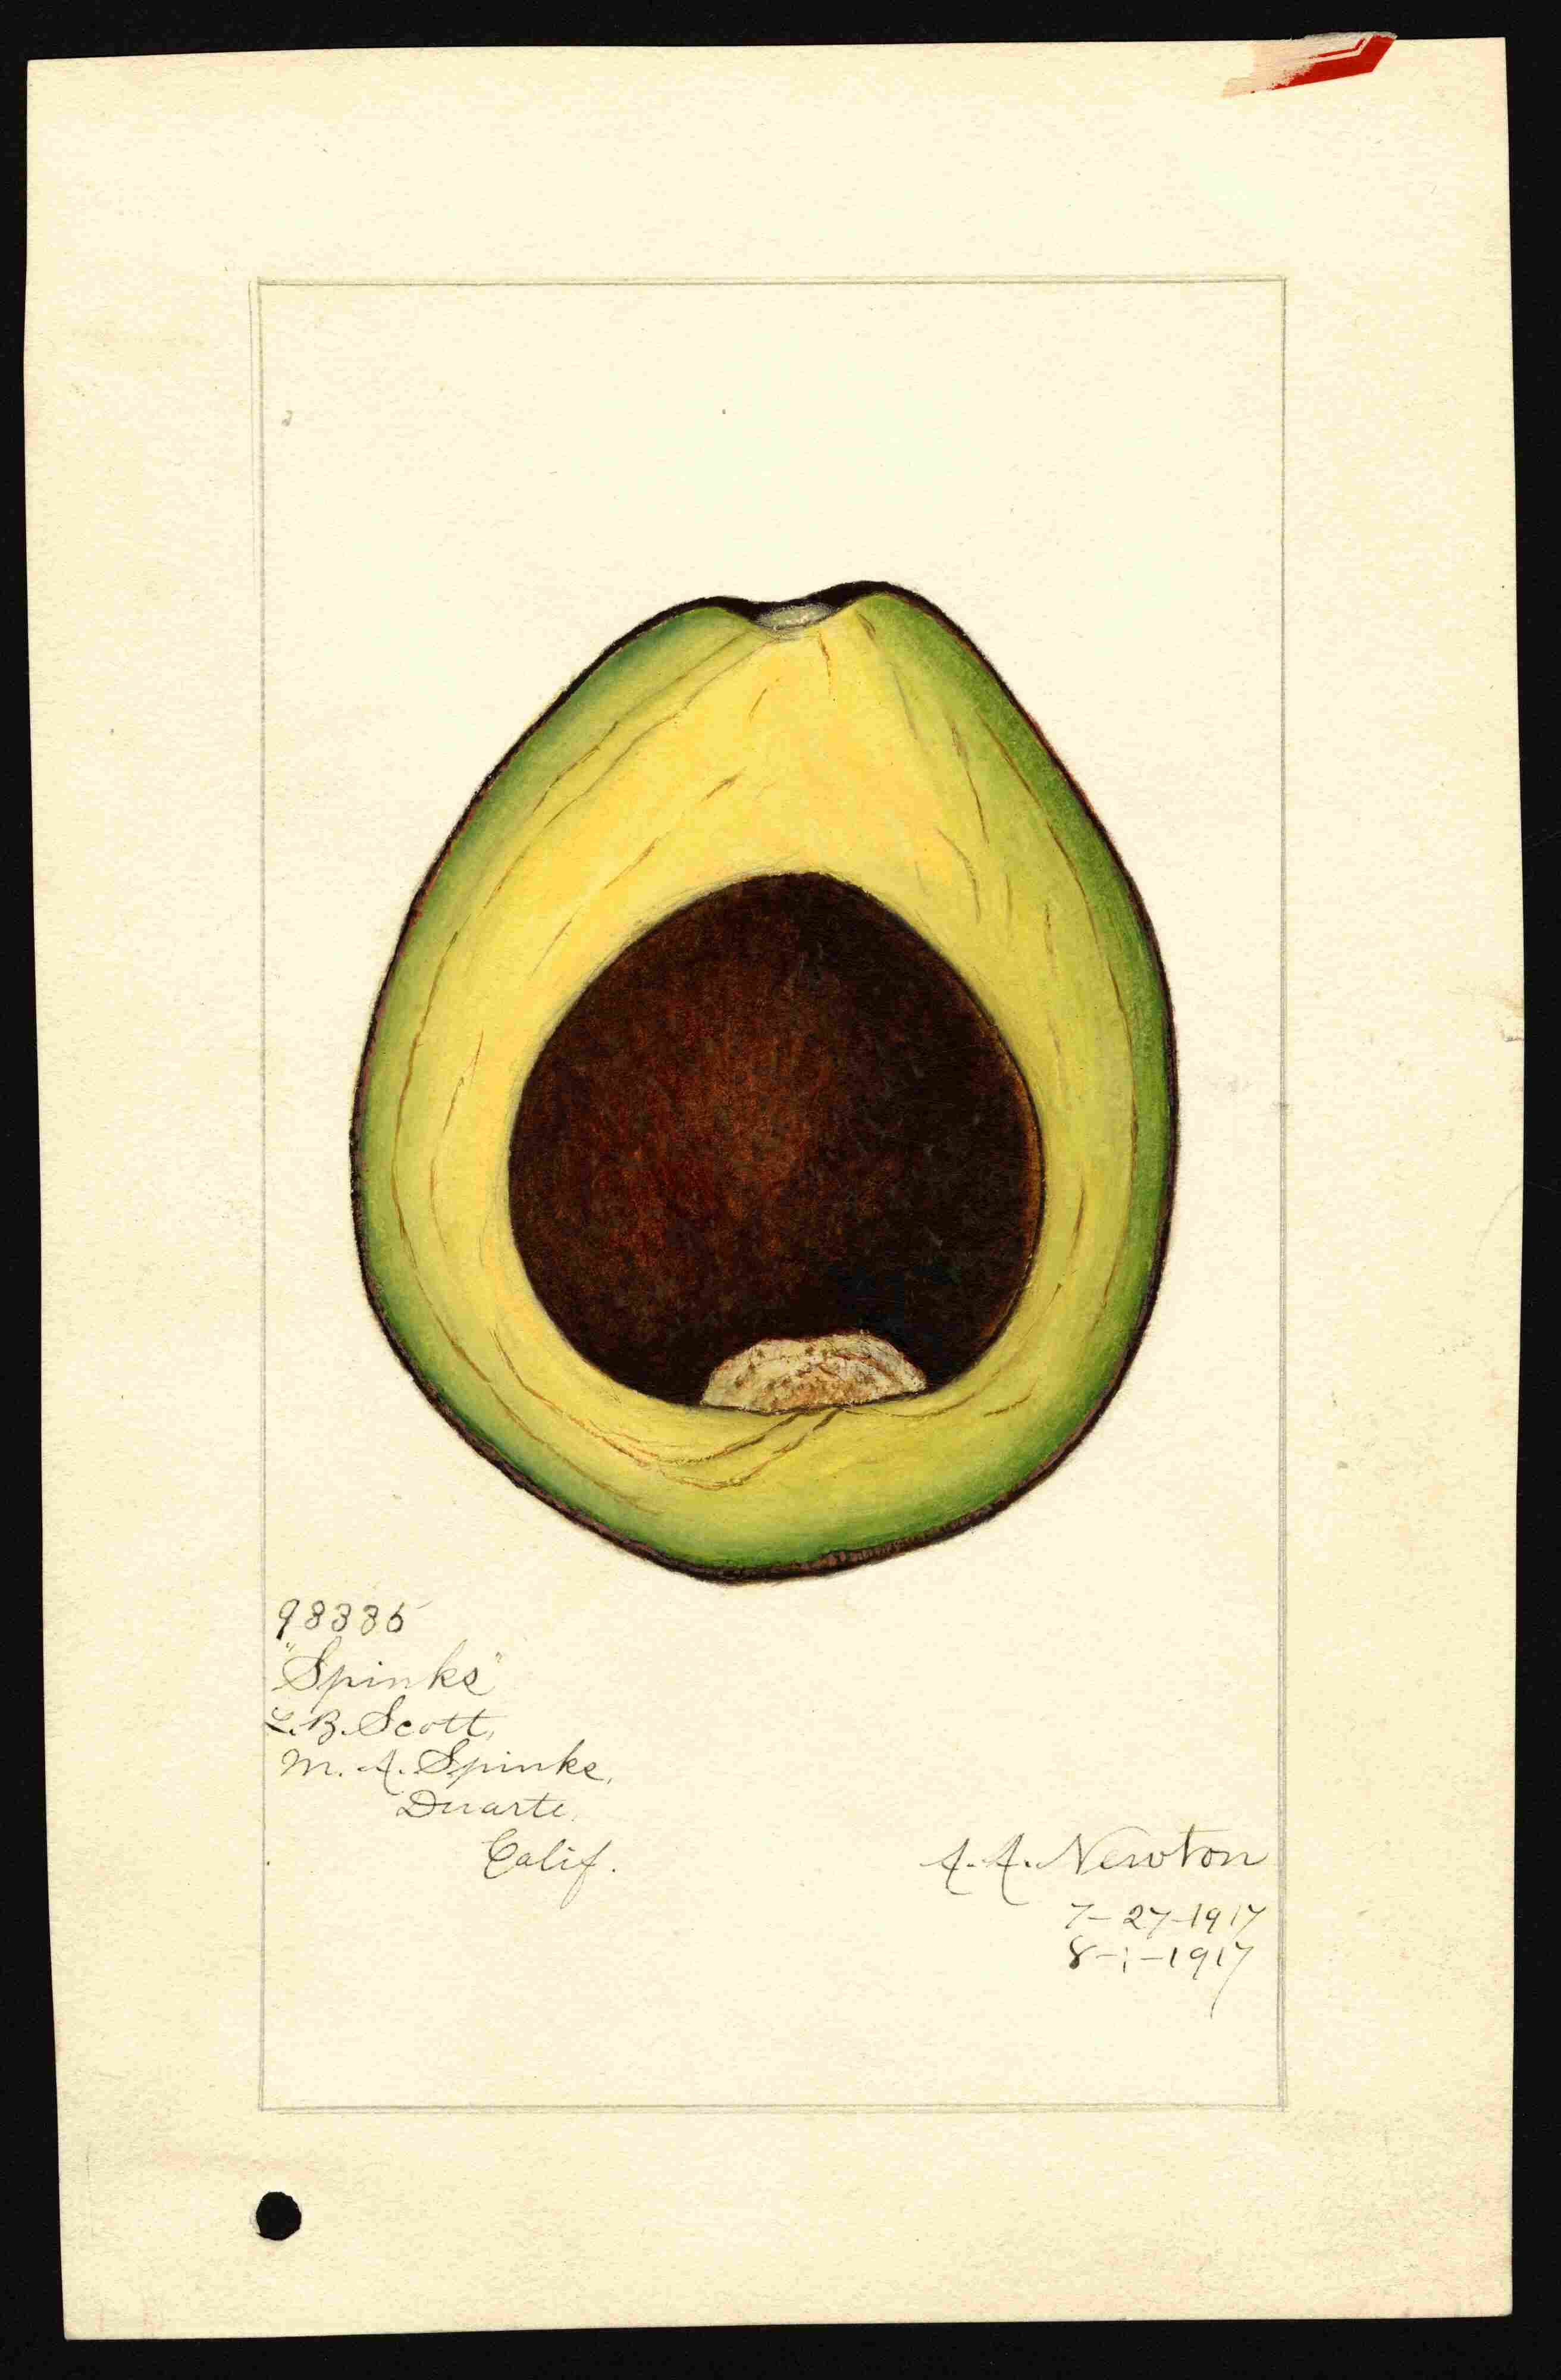 98335
"Spinks"
L. B. Scott,
M. A. Spinks,
Duarte,
Calif.
A. A. Newton
7-27-1917
8-1-1917